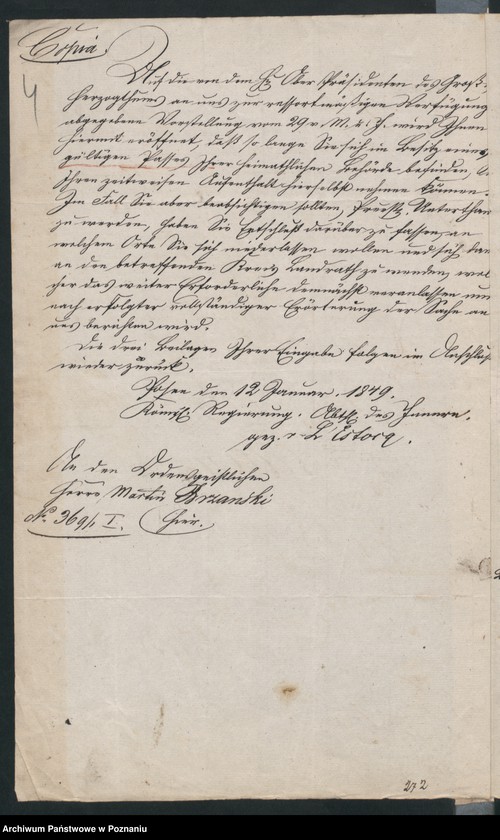 Copia.
4
Auf die von dem H. Ober Präsidenten des Groß-
herzogthums an uns zur ressortmäßigen Verfügung
abgegebene Vorstellung vom 29 v. M. u. J. wird Ihnen
hiermit eröffnet, daß so lange Sie sich im Besitz eines
gültigen Passes Ihrer heimathlichen Behörde befinden, Sie
Ihren zeitweisen Aufenthalt hierselbst nehmen können.
Im Fall Sie aber beabsichtigen sollten, Preuß. Unterthan
zu werden, haben Sie Entschluß darüber zu fassen, an
welchem Orte Sie sich niederlassen wollen und sich dann
an den betreffenden Kreis Landrath zu wenden, wel-
cher das weiter Erforderliche demnächst veranlassen und
nach erfolgter vollständiger Erörterung der Sache an
uns berichten wird.
Die drei Beilagen Ihrer Eingabe folgen im Anschluß
wieder zurück.
Posen den 12 Januar 1849.
Königl. Regierung. Abth. des Innern.
gez. v L'Estocq.
An den Ordensgeistlichen
Herrn Martin Brzanski
No 369/1 I. hier.
272
Archiwum Państwowe w Poznaniu